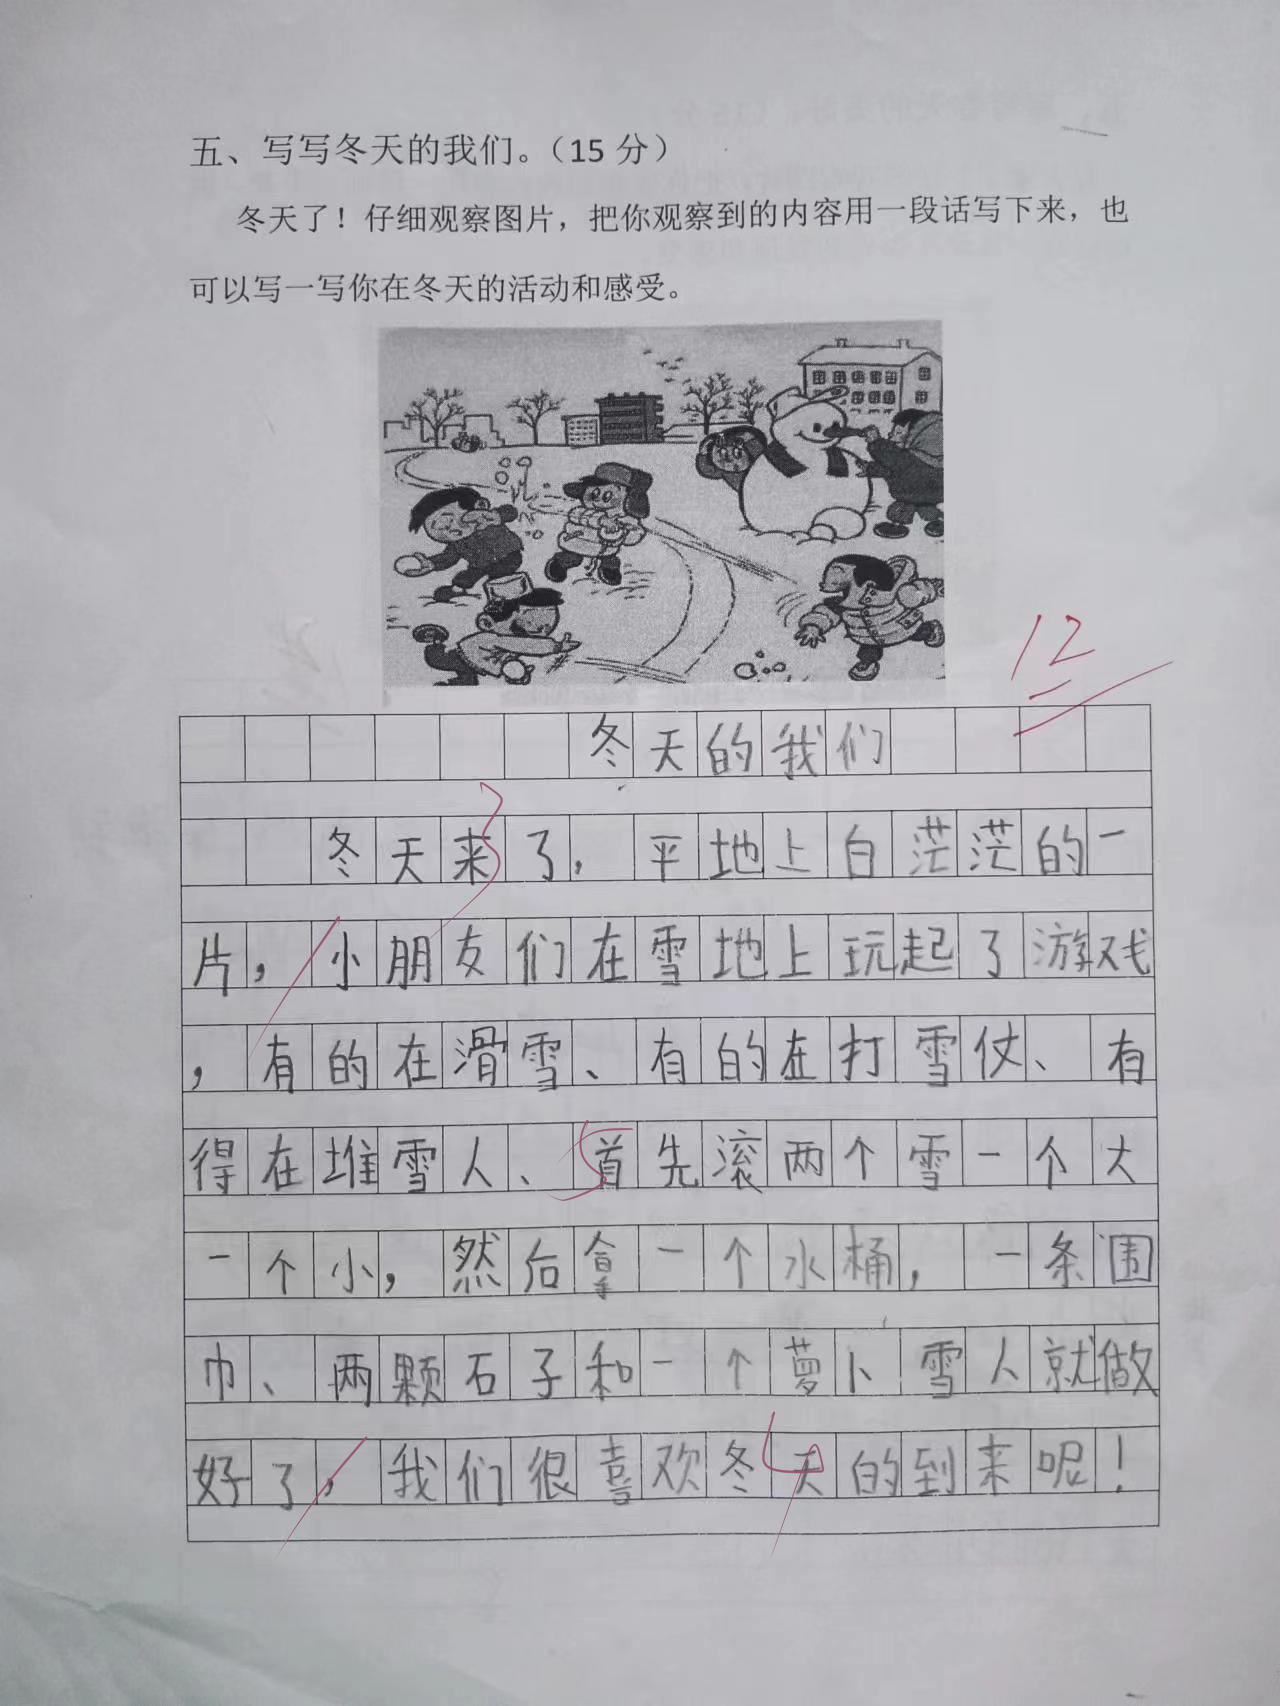 五、写写冬天的我们。（15 分）
冬天了！仔细观察图片，把你观察到的内容用一段话写下来，也
可以写一写你在冬天的活动和感受。
12
冬天的我们
冬天来了，平地上白茫茫的一
片，小朋友们在雪地上玩起了游戏
，有的在滑雪、有的在打雪仗、有
得在堆雪人、首先滚两个雪一个大
一个小，然后拿一个水桶，一条围
巾、两颗石子和一个萝卜雪人就做
好了，我们很喜欢冬天的到来呢！